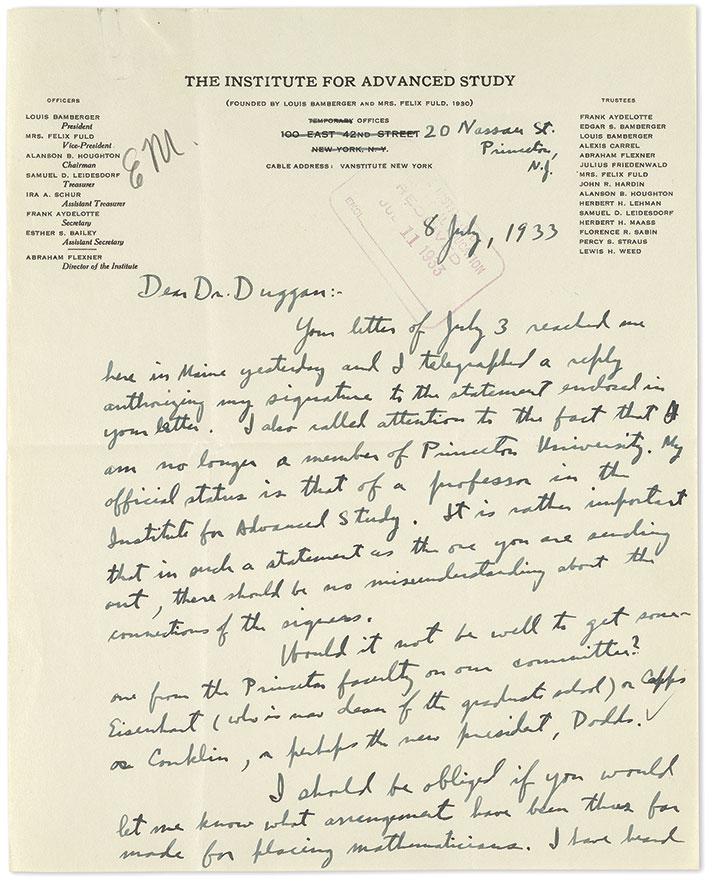 THE INSTITUTE FOR ADVANCED STUDY
(FOUNDED BY LOUIS BAMBERGER AND MRS. FELIX FULD, 1930)
OFFICERS
LOUIS BAMBERGER
President
MRS. FELIX FULD
Vice-President
ALANSON B. HOUGHTON
Chairman
SAMUEL D. LEIDESDORF
Treasurer
IRA A. SCHUR
Assistant Treasurer
FRANK AYDELOTTE
Secretary
ESTHER S. BAILEY
Assistant Secretary
ABRAHAM FLEXNER
Director of the Institute
EM.
TEMPORARY OFFICES
100 EAST 42ND STREET 20 Nassau St.
NEW YORK, N.Y. Princeton,
N.J.
CABLE ADDRESS: VANSTITUTE NEW YORK
TRUSTEES
FRANK AYDELOTTE
EDGAR S. BAMBERGER
LOUIS BAMBERGER
ALEXIS CARREL
ABRAHAM FLEXNER
JULIUS FRIEDENWALD
MRS. FELIX FULD
JOHN R. HARDIN
ALANSON B. HOUGHTON
HERBERT H. LEHMAN
SAMUEL D. LEIDESDORF
HERBERT H. MAASS
FLORENCE R. SABIN
PERCY S. STRAUS
LEWIS H. WEED
RECEIVED
JUL 11 1933
8 July, 1933
Dear Dr. Duggan:-
Your letter of July 3 reached me
here in Maine yesterday and I telegraphed a reply
authorizing my signature to the statement enclosed in
your letter. I also called attention to the fact that I
am no longer a member of Princeton University. My
official status is that of a professor in the
Institute for Advanced Study. It is rather important
that in such a statement as the one you are sending
out, there should be no misunderstanding about the
connections of the signers.
Would it not be well to get some-
one from the Princeton faculty on our committee?
Eisenhart (who is now dean of the graduate school) or Capps
or Conklin, or perhaps the new president, Dodds.
I should be obliged if you would
let me know what arrangement have been thus far
made for placing mathematicians. I have heard